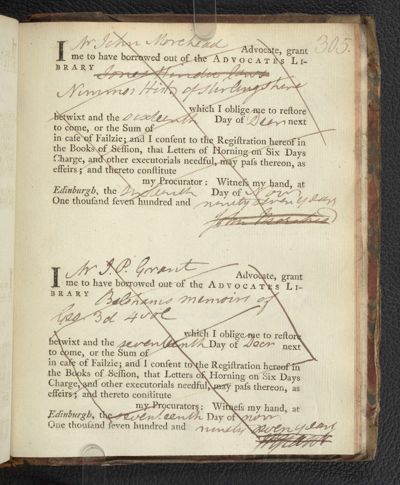 305.
I Mr John Morehead Advocate, grant
me to have borrowed out of the ADVOCATES LI-
BRARY Jones Hindu Laws
Nimmos History of Stirlingshire
which I oblige me to reſtore
betwixt and the sixteenth Day of Decr next
to come, or the Sum of
in caſe of Failzie; and I conſent to the Regiſtration hereof in
the Books of Seſſion, that Letters of Horning on Six Days
Charge, and other executorials needful, may paſs thereon, as
effeirs; and thereto conſtitute
my Procurator: Witneſs my hand, at
Edinburgh, the sixteenth Day of Novr
One thouſand ſeven hundred and ninety seven years
John Morehead
I Mr J. P. Grant Advocate, grant
me to have borrowed out of the ADVOCATES LI-
BRARY memoirs of
3d 4 vol
which I oblige me to reſtore
betwixt and the seventeenth Day of Decr next
to come, or the Sum of
in caſe of Failzie; and I conſent to the Regiſtration hereof in
the Books of Seſſion, that Letters of Horning on Six Days
Charge, and other executorials needful, may paſs thereon, as
effeirs; and thereto conſtitute
my Procurators: Witneſs my hand, at
Edinburgh, the seventeenth Day of Novr
One thouſand ſeven hundred and ninety seven years